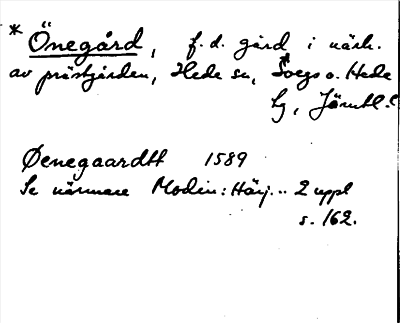 * Önegård, f.d. gård i närh.
av prästgården, Hede sn, Svegs o. Hede
tg, Jämtl.
Øenegaardtt 1589
Se närmare Modin: Härj... 2 uppl
s. 162.